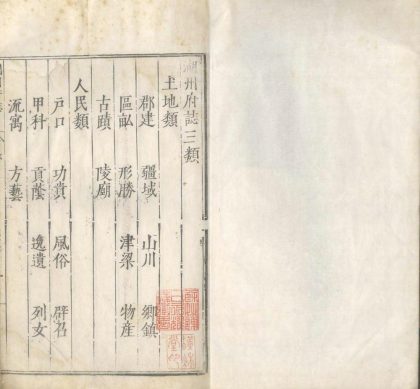 湖州府誌三類
土地類
郡建 疆域 山川 鄉鎮
區畝 形勝 津梁 物產
古蹟 陵廟
人民類
戶口 功貴 風俗 辟召
甲科 貢蔭 逸遺 列女
流寓 方藝